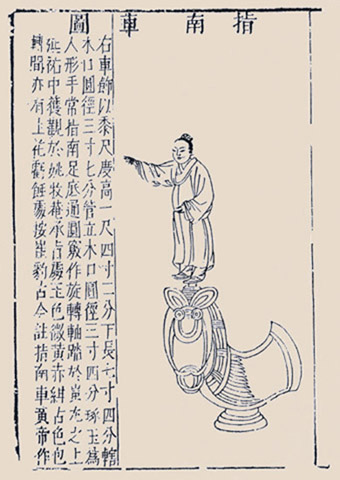 指南車圖
右車飾以黍尺度高一尺四寸二分下長六寸四分轄
木口圓徑三寸七分管立木口圓徑三寸四分琢玉為
人形手常指南足底通圓竅作旋轉軸踏於蚩尤之上
延祐中獲觀於姚牧菴承旨處玉色微黃赤紺古色包
轉間亦有土花蘚蝕處按崔豹古今註指南車黃帝作